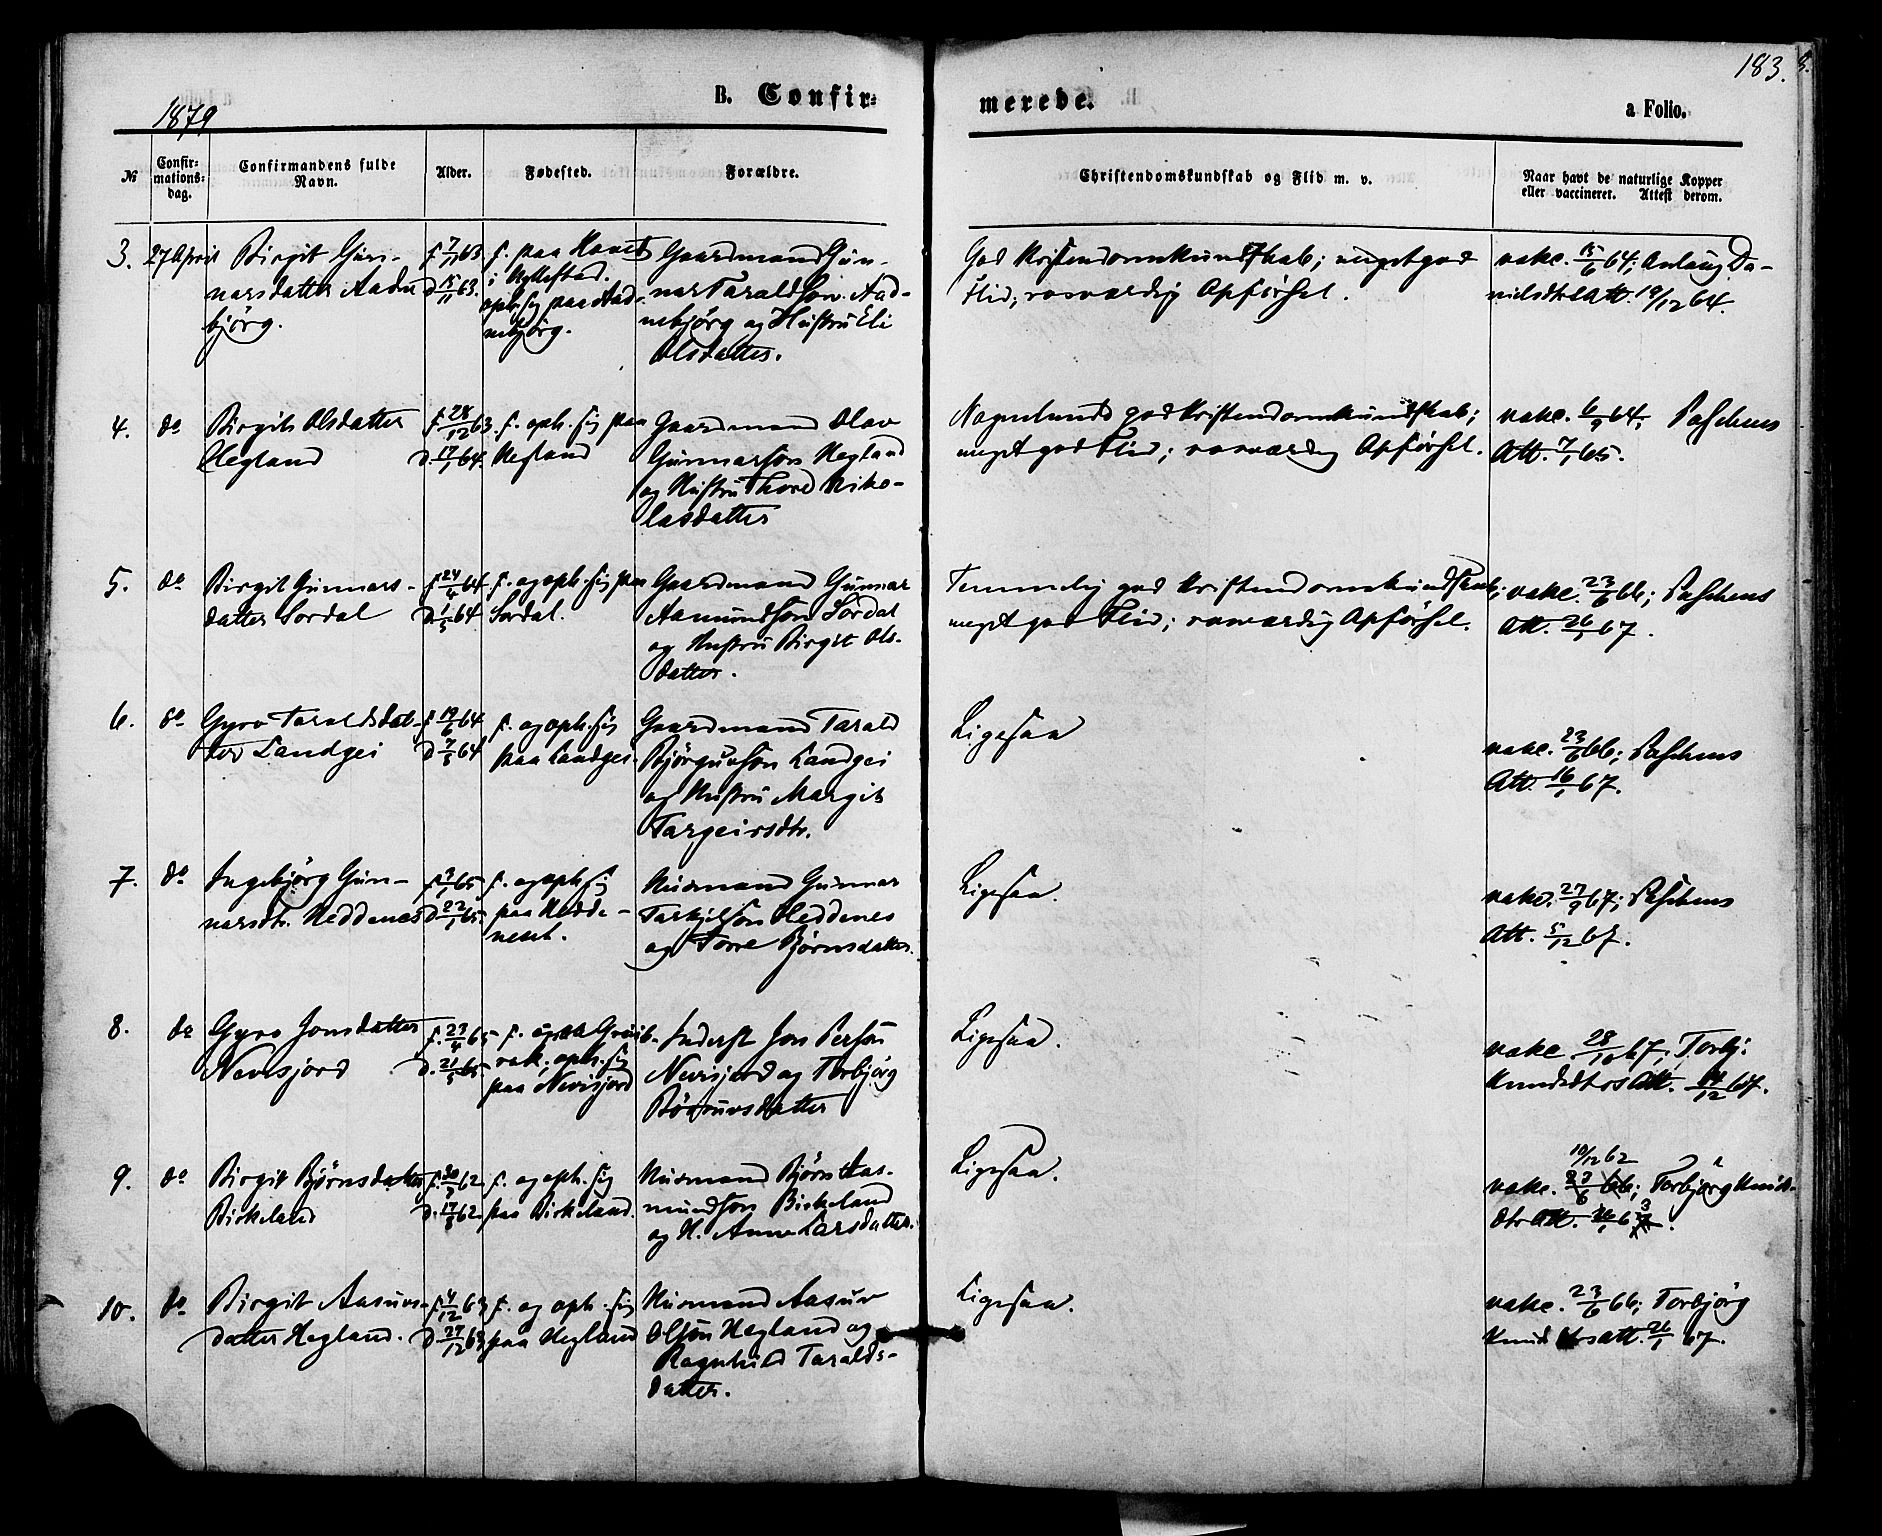 183.
1879
B. Confir-
merede.
a Folio.
№
Confir-
mations-
dag.
Confirmandens fulde
Navn.
Alder.
Fødested.
Forældre.
Christendomskundskab og Flid m. v.
Naar havt de naturlige Kopper
eller vaccineret. Attest derom.
3. 27 April
Birgit Gun-
narsdatter Aadne
björg.
f. 7/11 63
d. 15/11 63.
i Hyllestad.
oph. sig paa Aad-
nebjörg.
Gaardmand Gun-
nar Taraldson Aad-
nebjörg og Hustru Eli
Olsdatter.
God Kristendomskundskab; meget god
Flid; rosværdig Opførsel.
vakc. 15/6 64; Anlaug Da-
nielsdtrs Att. 19/12 64.
4. do
Birgit Olsdatter
Hegland
f. 28/12 63.
d. 17/1 64.
f. oph. sig paa
Hegland
Gaardmand Olav
Gunnarson Hegland
og Hustru Thore Niko-
lasdatter
Nogenlunde god Kristendomskundskab;
meget god Flid; rosværdig Opførsel.
vakc. 6/9 64; Paschens
Att. 7/1 65.
5. do
Birgit Gunnars-
datter Sordal
f. 24/4 64
d. 1/5 64
f. og oph. sig paa
Sordal.
Gaardmand Gunnar
Aamundson Sordal
og Hustru Birgit Ols-
datter.
Temmelig god Kristendomskundskab;
meget god Flid; rosværdig Opførsel.
vakc. 23/6 66; Paschens
Att. 26/1 67.
6. do
Gyro Taraldsdat-
ter Landgei
f. 19/6 64
d. 7/8 64
f. og oph. sig
paa Landgei.
Gaardmand Tarald
Björguvson Landgei
og Hustru Margit
Targeirsdtr.
Ligesaa
vakc. 23/6 66; Paschens
Att. 16/1 67.
7. do
Ingebjörg Gun-
narsdtr. Heddenes
f. 3/1 65
d. 22/1 65.
f. og oph. sig
paa Hedde-
neset.
Husmand Gunnar
Tarkjelson Heddenes
og Torre Björnsdatter.
Ligesaa.
vakc. 27/9 67; Paschens
Att. 5/12 67.
8. do
Gyro Jonsdatter
Nevisjord
f. 23/4 65
d. 21/5 65.
rak; oph. sig
paa Nevisjord
Inderst Jon Person
Nevisjord og Torbjörg
Ligesaa.
vakc. 28/10 67; Torbj.
Knudsdtrs Att. 14/12 67.
9. do
Birgit Björnsdatter
Birkeland
f. 30/7 62
d. 17/8 62
f. og oph. sig
paa Birkeland.
Husmand Björn Aas-
mundson Birkeland
og H. Anne Larsdatter.
Ligesaa.
19/12 62
vakc. 23/6 66; Torbjörg Knuds-
dtr Att. 26/1 63.
10. do
Birgit Aasuvs-
datter Hegland.
f. 4/12 63
d. 27/12 63
f. og oph. sig
paa Hegland
Husmand Aasuv
Olson Hegland og
Ragnhild Taralds-
datter.
Ligesaa.
vakc. 23/6 66; Torbjörg
Knudsdtrs att. 26/1 67.